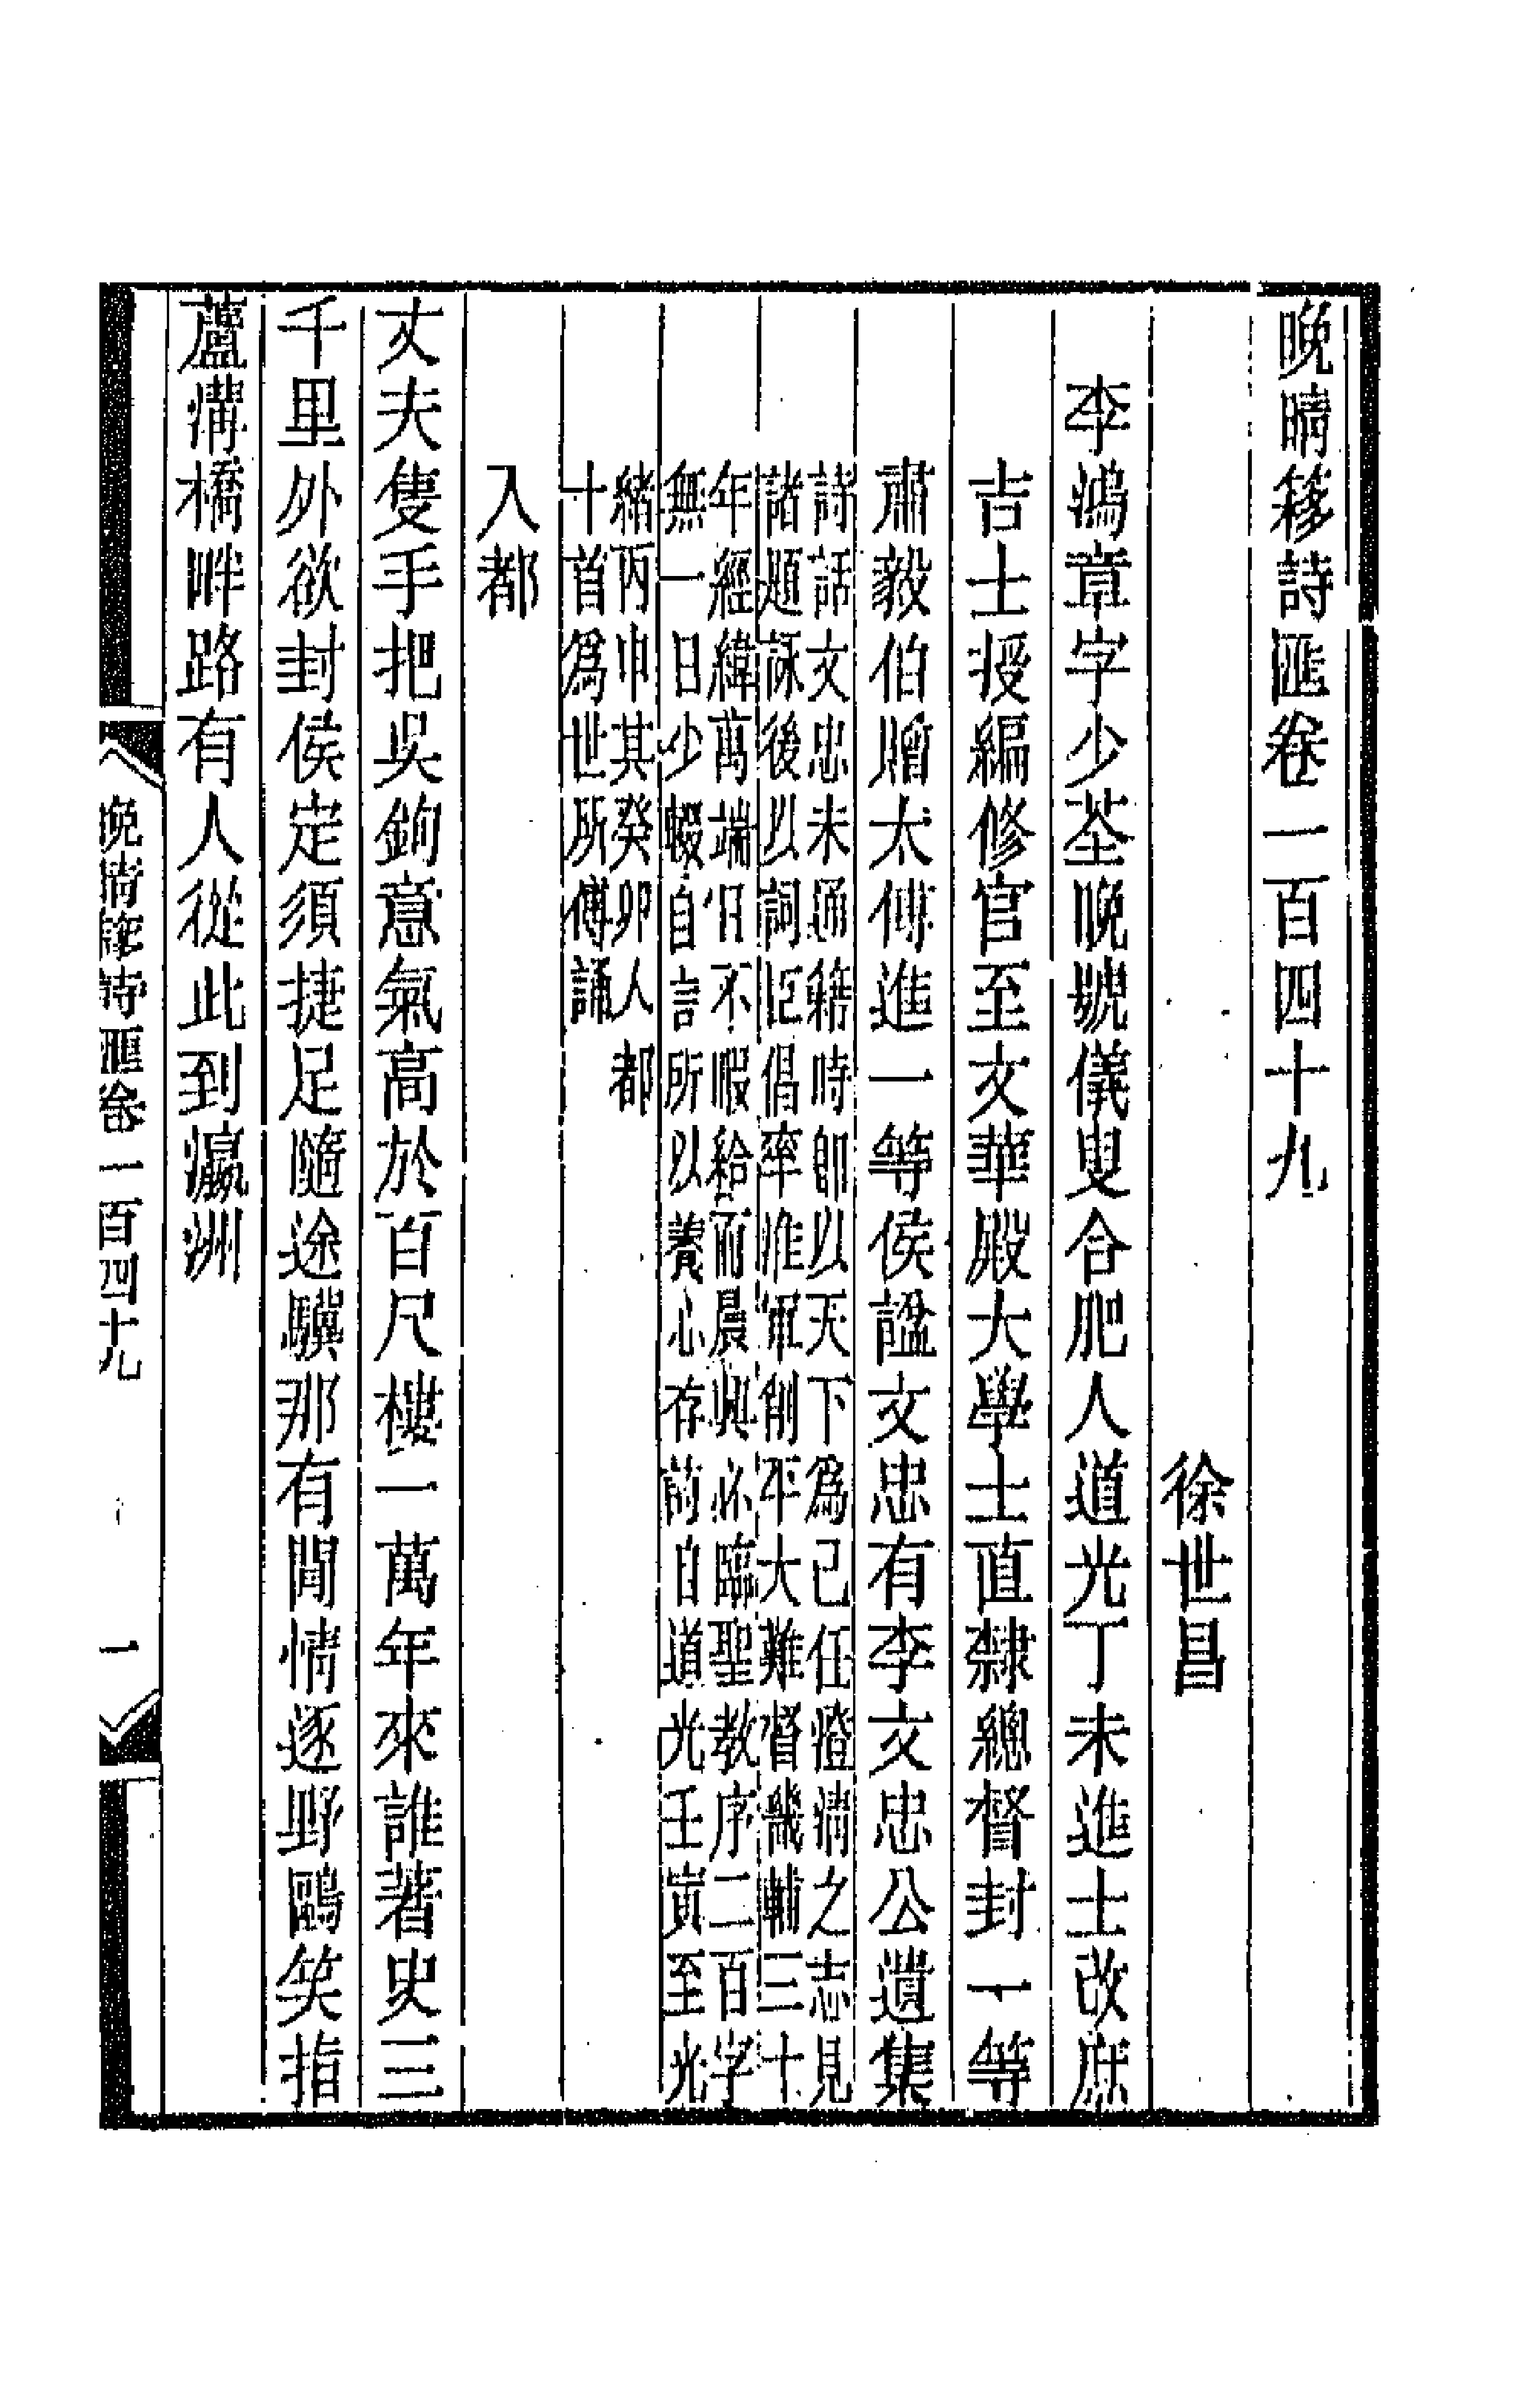 晚晴簃詩匯卷一百四十九
徐世昌
李鴻章字少荃晚號儀叟合肥人道光丁未進士改庶
吉士授編修官至文華殿大學士直隸總督封一等
肅毅伯贈太傅進一等侯諡文忠有李文忠公遺集
詩話文忠未通籍時卽以天下爲己任澄淸之志見
諸題詠後以詞臣倡率淮軍削平大難督畿輔三十
年經緯萬端日不暇給而晨興必臨聖教序二百字
無一日少輟自言所以養心存詩自道光壬寅至光
緒丙申其癸卯入都
十首爲世所傳誦
入都
丈夫隻手把吳鉤意氣高於百尺樓一萬年來誰著史三
千里外欲封侯定須捷足隨途驥那有閒情逐野鷗笑指
蘆溝橋畔路有人從此到瀛洲
晚晴簃詩匯卷一百四十九
一